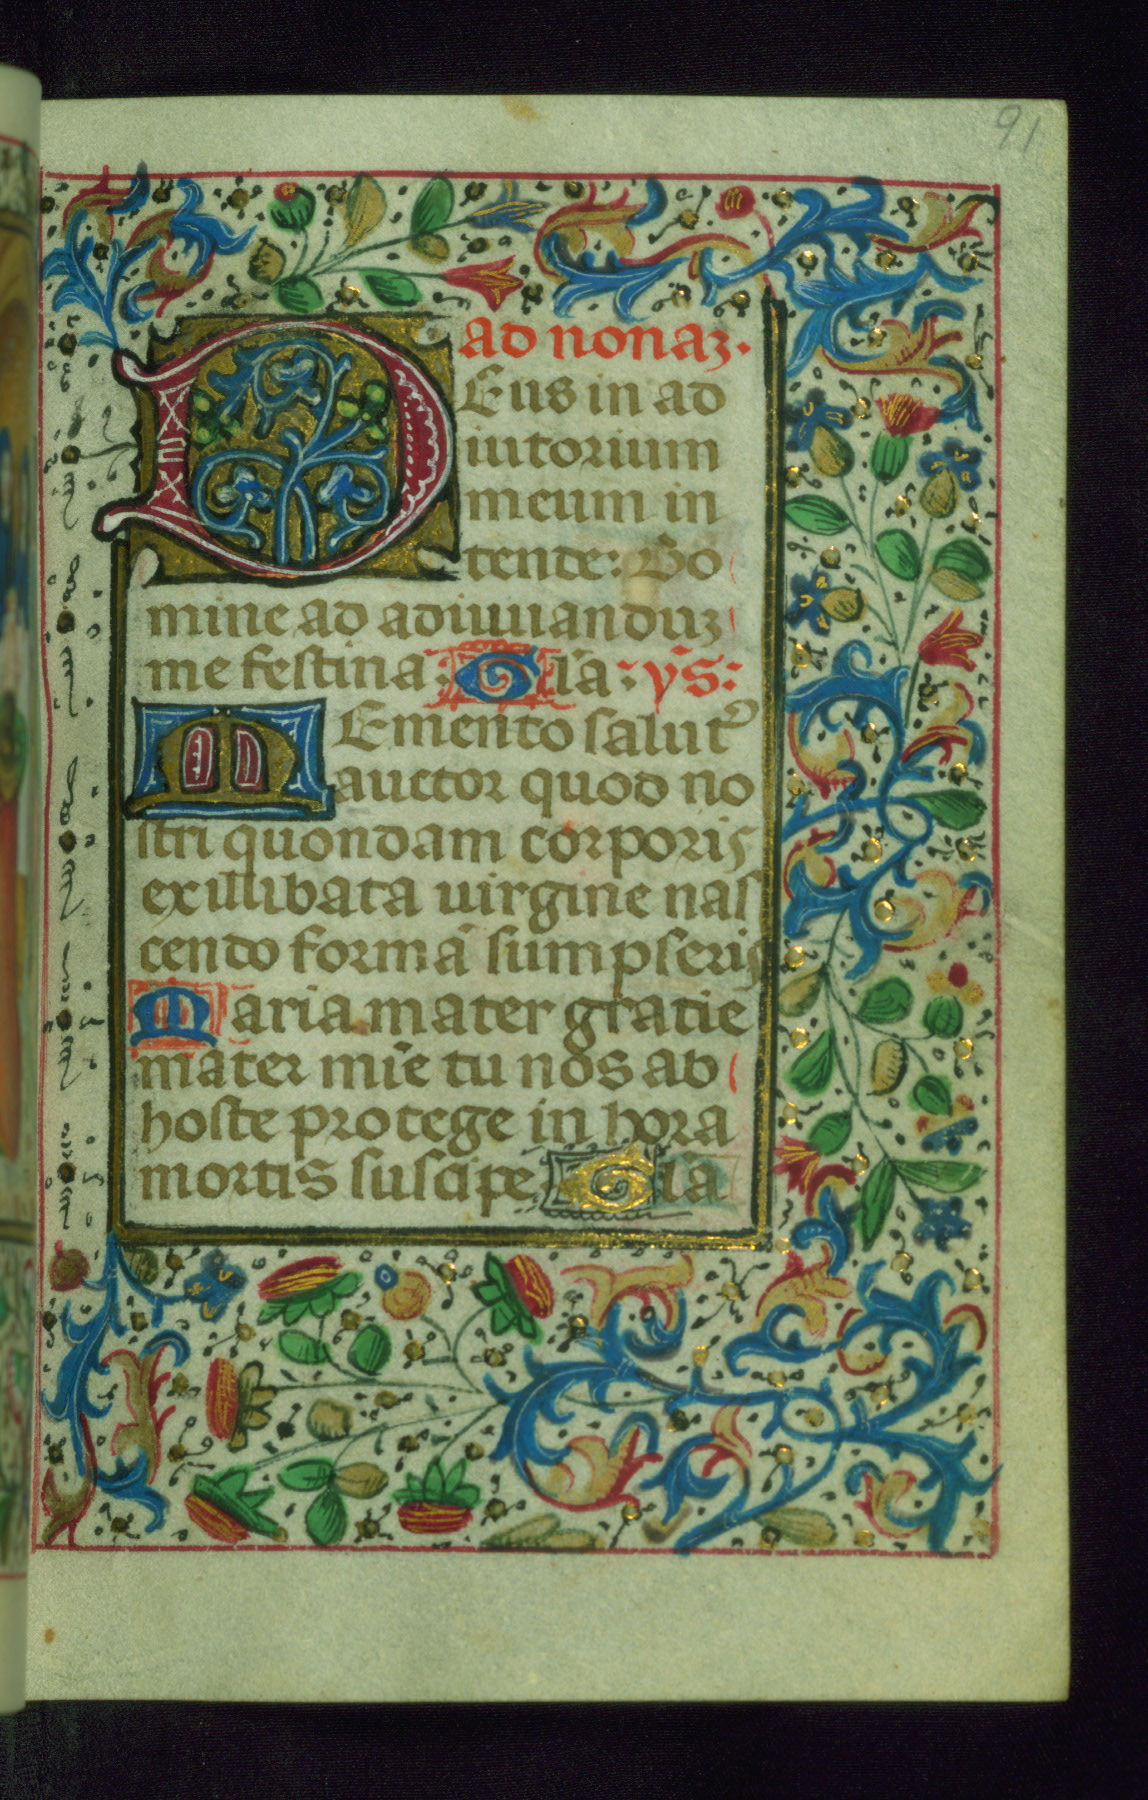 91
ad nonaꝫ.
DEus in ad
iutorium
meum in
tende: Do
mine ad adiuuanduꝫ
me festina: Gl̄a: ẏs:
MEmento salut᷒
auctor quod no
stri quondam corporis
exillibata uirgine nas
cendo formā sumpseris
Maria mater gratie
mater mīe tu nos ab
hoste protege in hora
mortis suscipe Gl̄a